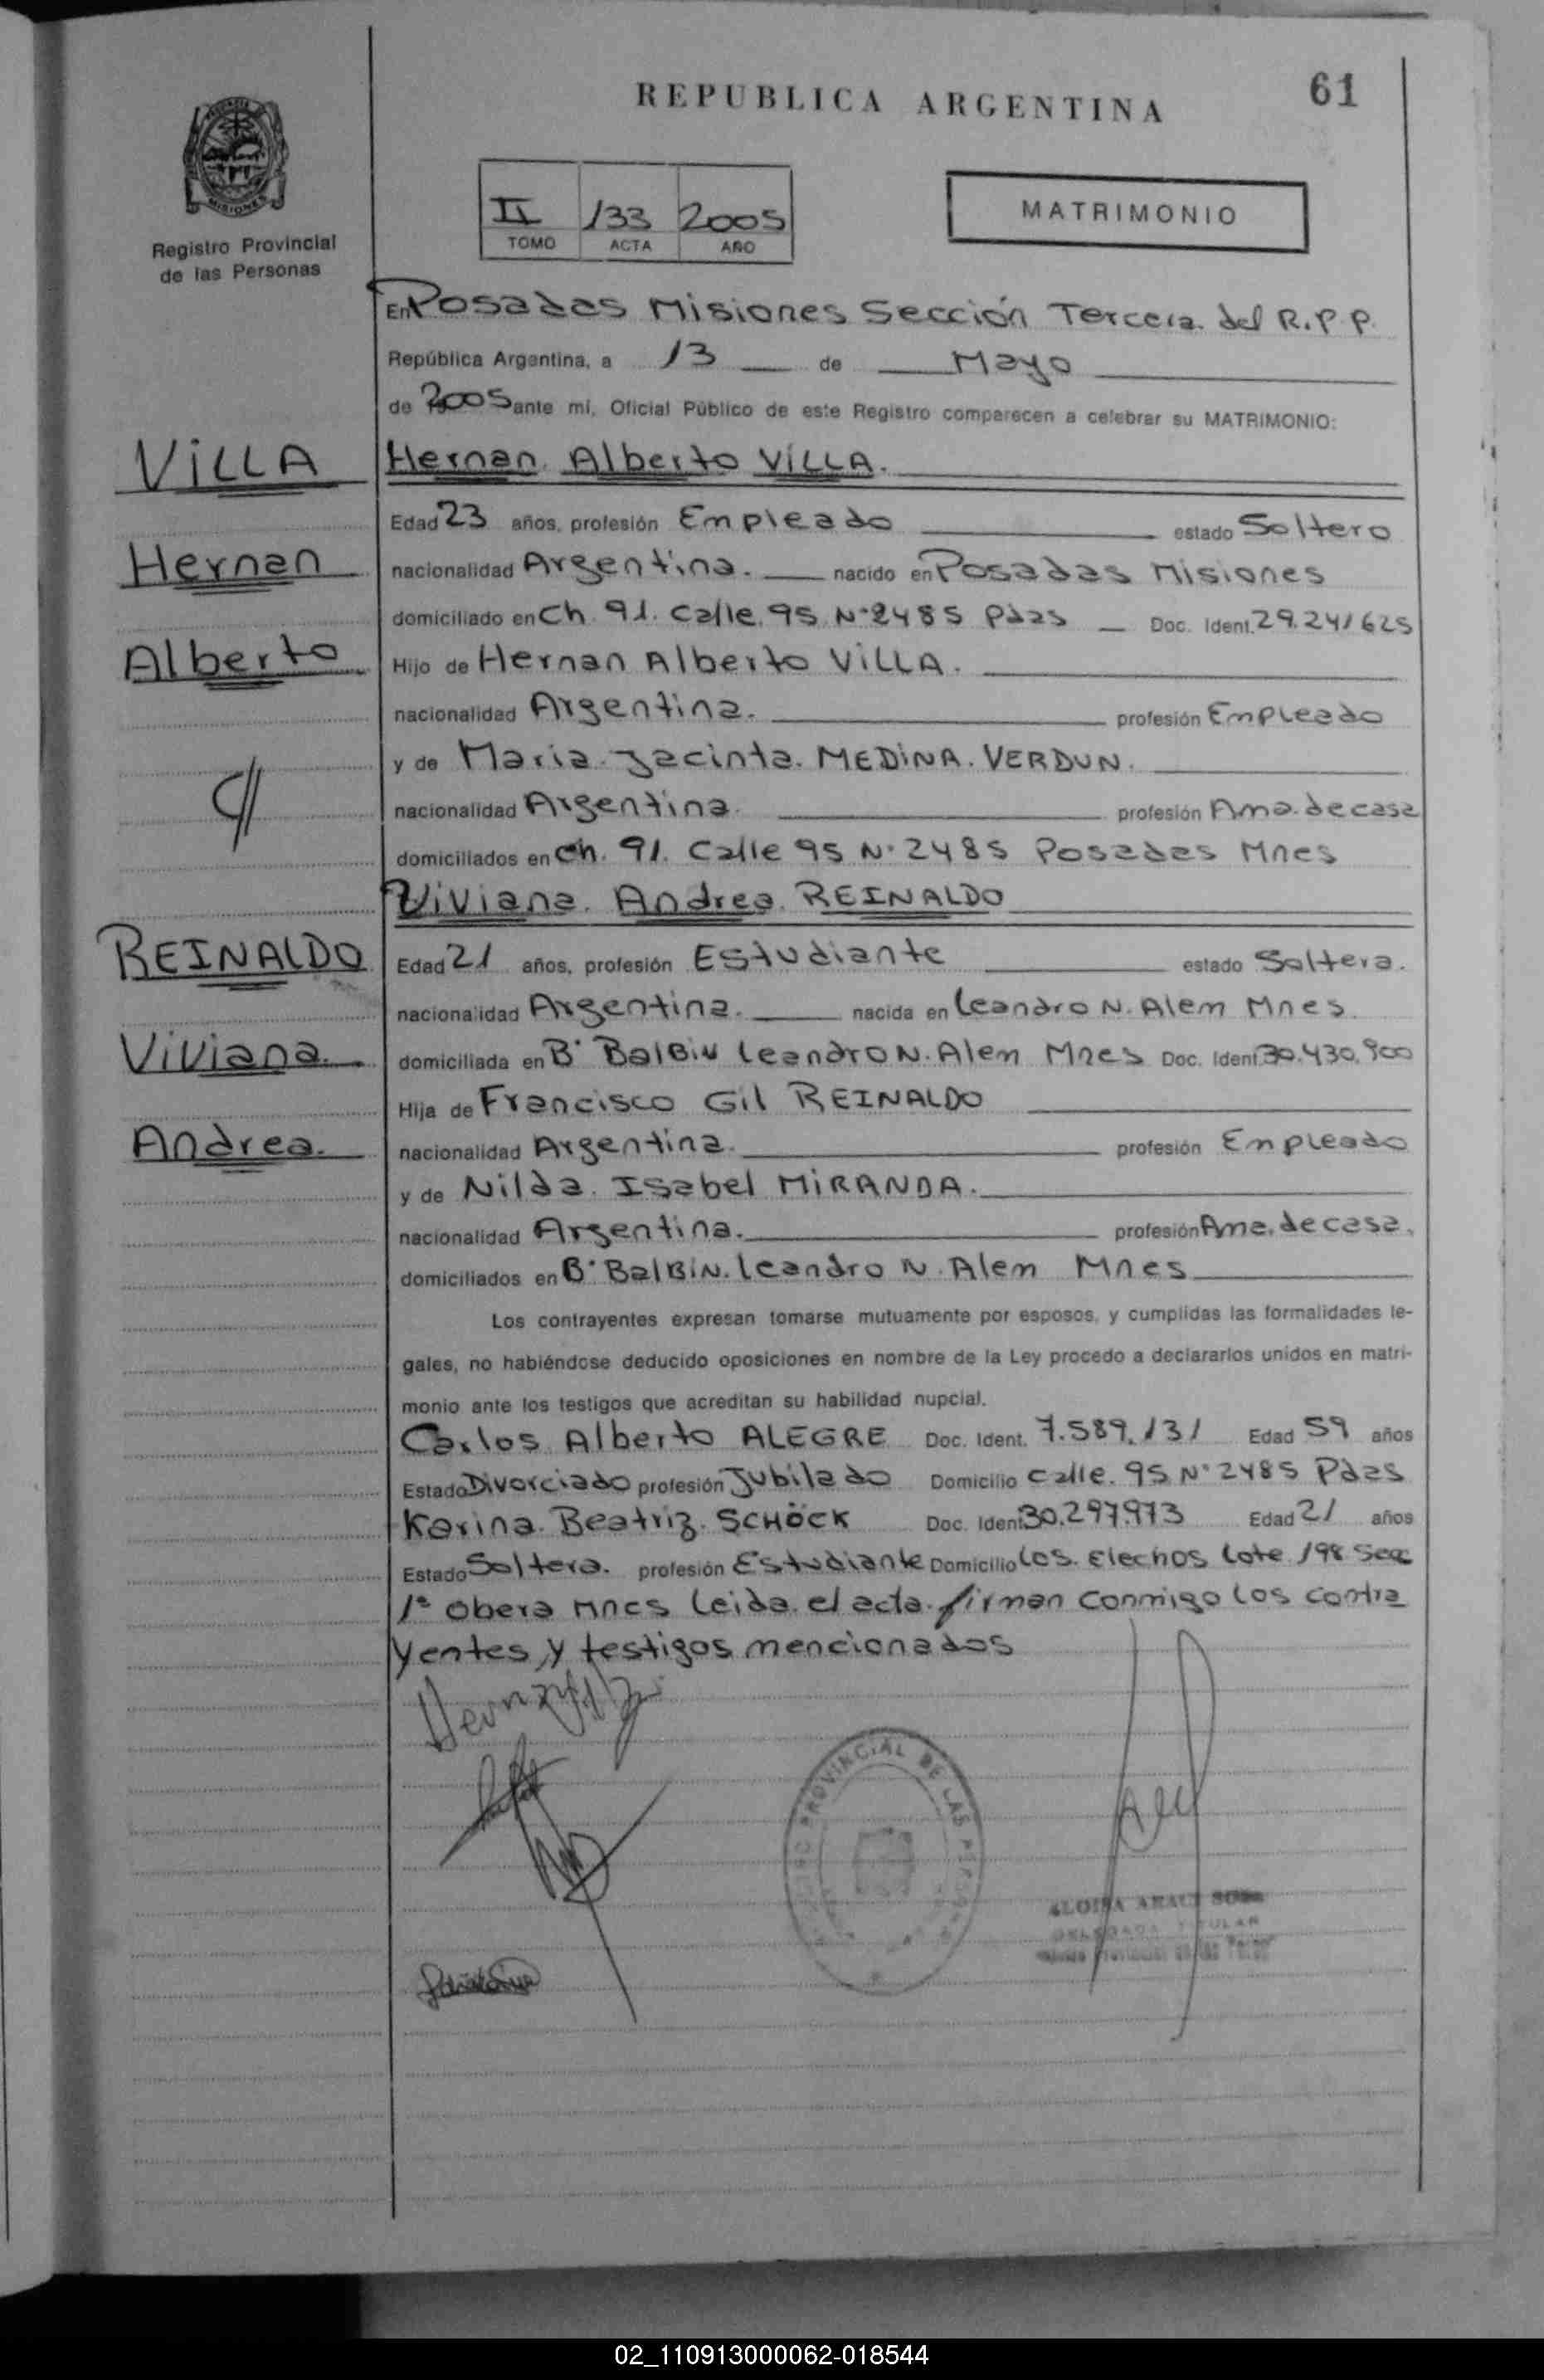 REPUBLICA ARGENTINA
61
MISIONES
Registro Provincial
de las Personas
II 133 2005
TOMO ACTA AÑO
MATRIMONIO
En Posadas Misiones Sección Tercera del R.P.P.
República Argentina, a 13 de Mayo
de 2005 ante mí, Oficial Público de este Registro comparecen a celebrar su MATRIMONIO:
VILLA
Hernan Alberto VILLA.
Edad 23 años, profesión Empleado estado Soltero
Hernan
nacionalidad Argentina. nacido en Posadas Misiones
domiciliado en Ch. 91. Calle 95 N° 2485 Pdas Doc. Ident. 29.241625
Alberto
Hijo de Hernan Alberto VILLA.
nacionalidad Argentina. profesión Empleado
y de Maria Jacinta. MEDINA. VERDUN.
nacionalidad Argentina. profesión Ama de casa
domiciliados en Ch. 91. Calle 95 N° 2485 Posadas Mnes
Viviana. Andrea. REINALDO
REINALDO
Edad 21 años, profesión Estudiante estado Soltera.
nacionalidad Argentina. nacida en Leandro N. Alem Mnes.
Viviana.
domiciliada en B° Balbin Leandro N. Alem Mnes Doc. Ident 30.430.900
Hija de Francisco Gil REINALDO
Andrea.
nacionalidad Argentina. profesión Empleado
y de Nilda. Isabel MIRANDA.
nacionalidad Argentina. profesión Ama de casa.
domiciliados en B° Balbin. Leandro N. Alem Mnes
Los contrayentes expresan tomarse mutuamente por esposos, y cumplidas las formalidades le-
gales, no habiéndose deducido oposiciones en nombre de la Ley procedo a declararlos unidos en matri-
monio ante los testigos que acreditan su habilidad nupcial.
Carlos Alberto ALEGRE Doc. Ident. 7.589.131 Edad 59 años
Estado Divorciado profesión Jubilado Domicilio Calle. 95 N° 2485 Pdas
Karina. Beatriz. SCHÖCK Doc. Ident 30.297.973 Edad 21 años
Estado Soltera. profesión Estudiante Domicilio Los. Elechos Lote 198 Secc
1ª Obera Mnes Leida el acta firman conmigo los contra
yentes y testigos mencionados
PROVINCIAL DE LAS
02_110913000062-018544